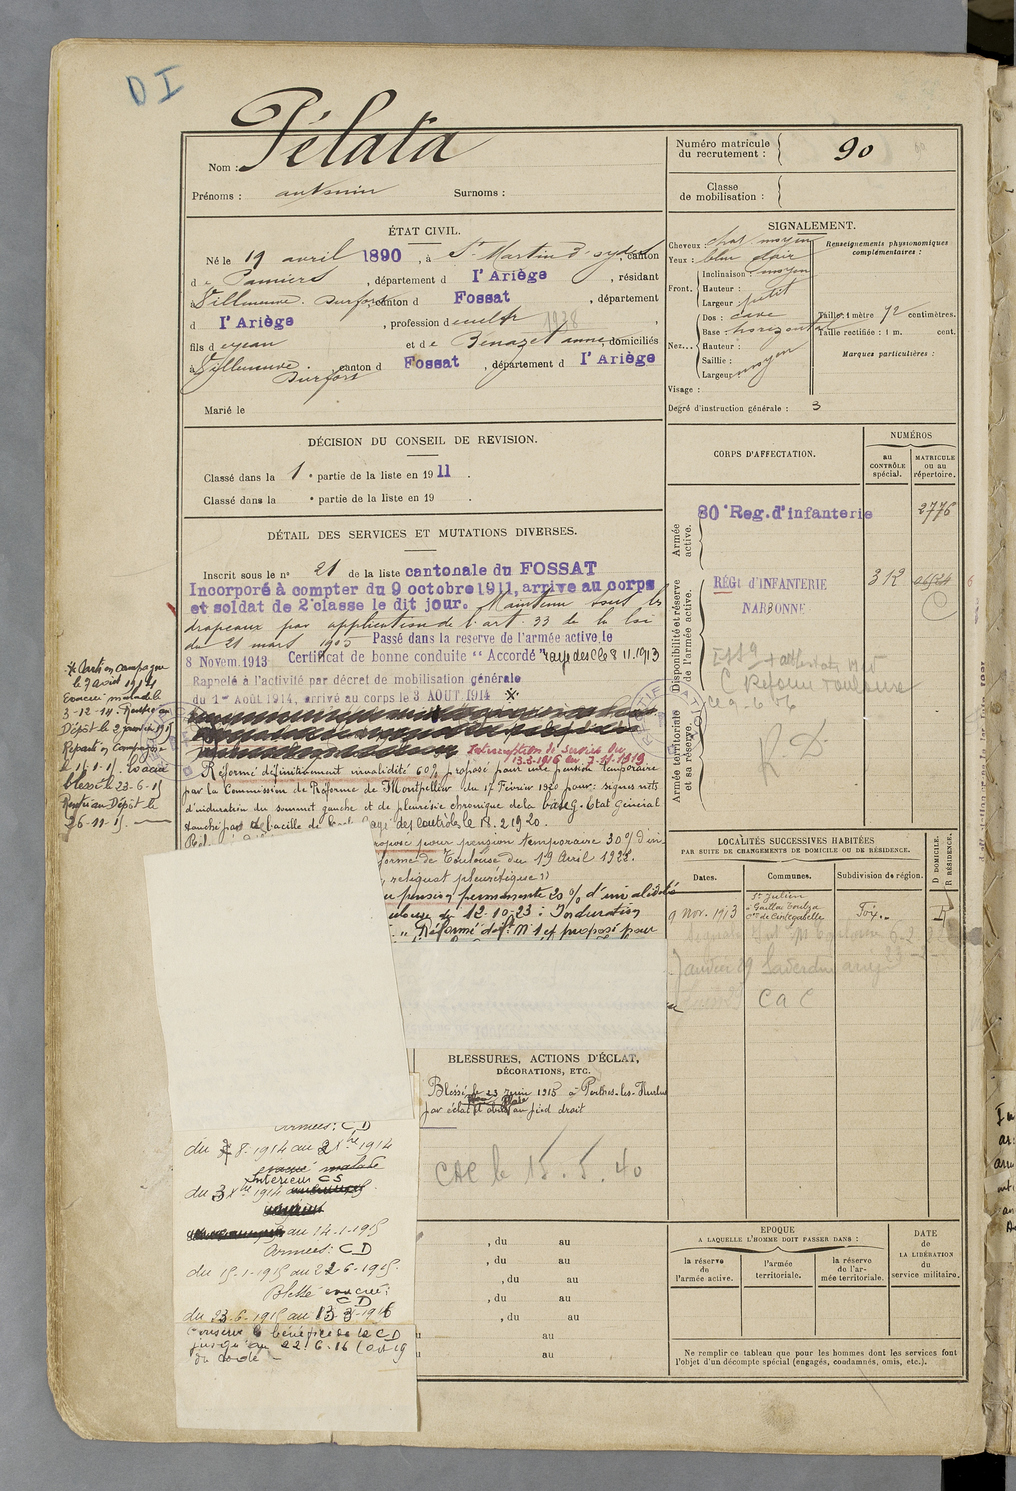 D I
Nom : Pélata
Prénoms : antonin Surnoms :
Numéro matricule
du recrutement : 90
Classe
de mobilisation :
ÉTAT CIVIL.
Né le 19 avril 1890, à St Martin d'oydes, canton
de Pamiers, département d l'Ariège, résidant
à Villeneuve. Durfort, canton d Fossat, département
d l'Ariège, profession d cultr 1938
fils d e jean et de Benazet anne, domiciliés
à Villeneuve. Durfort canton d Fossat, département d l'Ariège
Marié le
SIGNALEMENT.
Cheveux : chat. moyen
Yeux : bleu clair
Front. Inclinaison : moyen
Hauteur :
Largeur : petit
Nez... Dos : cave
Base : horizontal
Hauteur :
Saillie :
Largeur : moyen
Visage :
Renseignements physionomiques
complémentaires :
Taille : 1 mètre 72 centimètres.
Taille rectifiée : 1 m. cent.
Marques particulières :
Degré d'instruction générale : 3
DÉCISION DU CONSEIL DE REVISION.
Classé dans la 1e partie de la liste en 1911.
Classé dans la e partie de la liste en 19 .
CORPS D'AFFECTATION.
NUMÉROS
au
CONTRÔLE
spécial.
MATRICULE
ou au
répertoire.
Armée
active.
80e Reg. d'infanterie 2776
Disponibilité et réserve
de l'armée active.
RÉGt d'INFANTERIE 312
NARBONNE
C Réforme Toulouse
Armée territoriale
et sa réserve.
R D
DÉTAIL DES SERVICES ET MUTATIONS DIVERSES.
Inscrit sous le n° 21 de la liste cantonale du FOSSAT
Incorporé à compter du 9 octobre 1911, arrive au corps
et soldat de 2e classe le dit jour. Maintenu sous les
drapeaux par application de l'art. 33 de la loi
du 21 mars 1905 Passé dans la reserve de l'armée active, le
8 Novem. 1913 Certificat de bonne conduite "Accordé" rayé des Cles 8 11. 1913
Rappelé à l'activité par décret de mobilisation générale
du 1er Août 1914, arrivé au corps le 3 AOUT 1914 *
Interruption de services du
13-3-1916 au 7-11-1919
Réformé définitivement invalidité 60% proposé pour une pension temporaire
par la Commission de Réforme de Montpellier du 17 Février 1920 pour: signes nets
d'induration du sommet gauche et de pleurésie chronique de la base g. Etat général
des contrôles le 18.2.1920.
proposé pour pension temporaire 30% d'in
forme de Toulouse du 19 Avril 1922.
reliquat pleurétique"
pension permanente 20% d'invalidité
12-10-23 : Induration
"Réformé déft N°1 et proposé pour
* Parti en campagne
le 9 août 1914
Evacué malade le
3-12-14. Rentré au
Dépôt le 2 janvier 1915
Reparti en Campagne
le 15-1-15. Evacué
blessé le 23-6-15
Rentré au Dépôt le
26-11-15.
LOCALITÉS SUCCESSIVES HABITÉES
PAR SUITE DE CHANGEMENTS DE DOMICILE OU DE RÉSIDENCE.
Dates. Communes. Subdivision de région. D DOMICILE. R RÉSIDENCE.
9 Nov. 1913 St Julien
à Gailla Toulza
Cne de Cintegabelle Foix.. R
Janvier 29 Saverdun
C a C
BLESSURES, ACTIONS D'ÉCLAT,
DÉCORATIONS, ETC.
Blessé le 23 Juin 1915 à Perthes-les-Hurlus
par éclat d'obus au pied droit
CAC le 15.5.40
Armées: C D
du 3 8. 1914 au 2 Xbre 1914
evacué malade
Intérieur CS
du 3 Xbre 1914
au 14-1-1915
Armées: C D
du 15-1-1915 au 22 6-1915.
Blessé evacué:
C. D
du 23-6-1915 au 13 3-1916
Conserve le bénéfice de la C D
jusqu'au 22-6-16 (art 19
du code –
, du au
, du au
, du au
, du au
, du au
au
au
EPOQUE
A LAQUELLE L'HOMME DOIT PASSER DANS :
la réserve
de
l'armée active.
l'armée
territoriale.
la réserve
de l'ar-
mée territoriale.
DATE
de
LA LIBÉRATION
du
service militaire.
Ne remplir ce tableau que pour les hommes dont les services font
l'objet d'un décompte spécial (engagés, condamnés, omis, etc.).